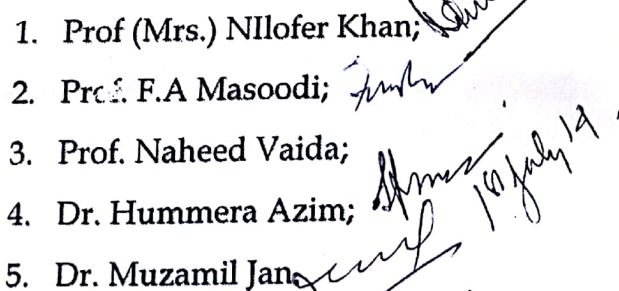 1. Prof (Mrs.) NIlofer Khan;
2. Prof. F.A Masoodi;
3. Prof. Naheed Vaida;
4. Dr. Hummera Azim;
1st July 19
5. Dr. Muzamil Jan